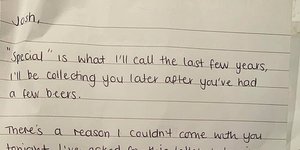 Josh,
"Special" is what I'll call the last few years,
I'll be collecting you later after you've had
a few beers.
There's a reason I couldn't come with you
tonight I've asked for this letter